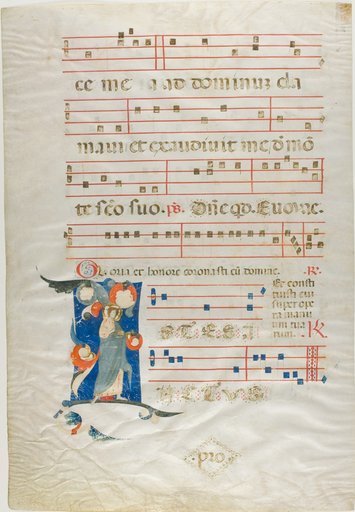 ce me ad dominum cla
maui et exaudiuit me d mo
te sco suo. ps. Dne qd. Euouae.
Gloria et honore coronasti eu domine. R.
Et consti
tuisti eu
super ope
ra manu
um tua
rum. R
S T E S T
pro